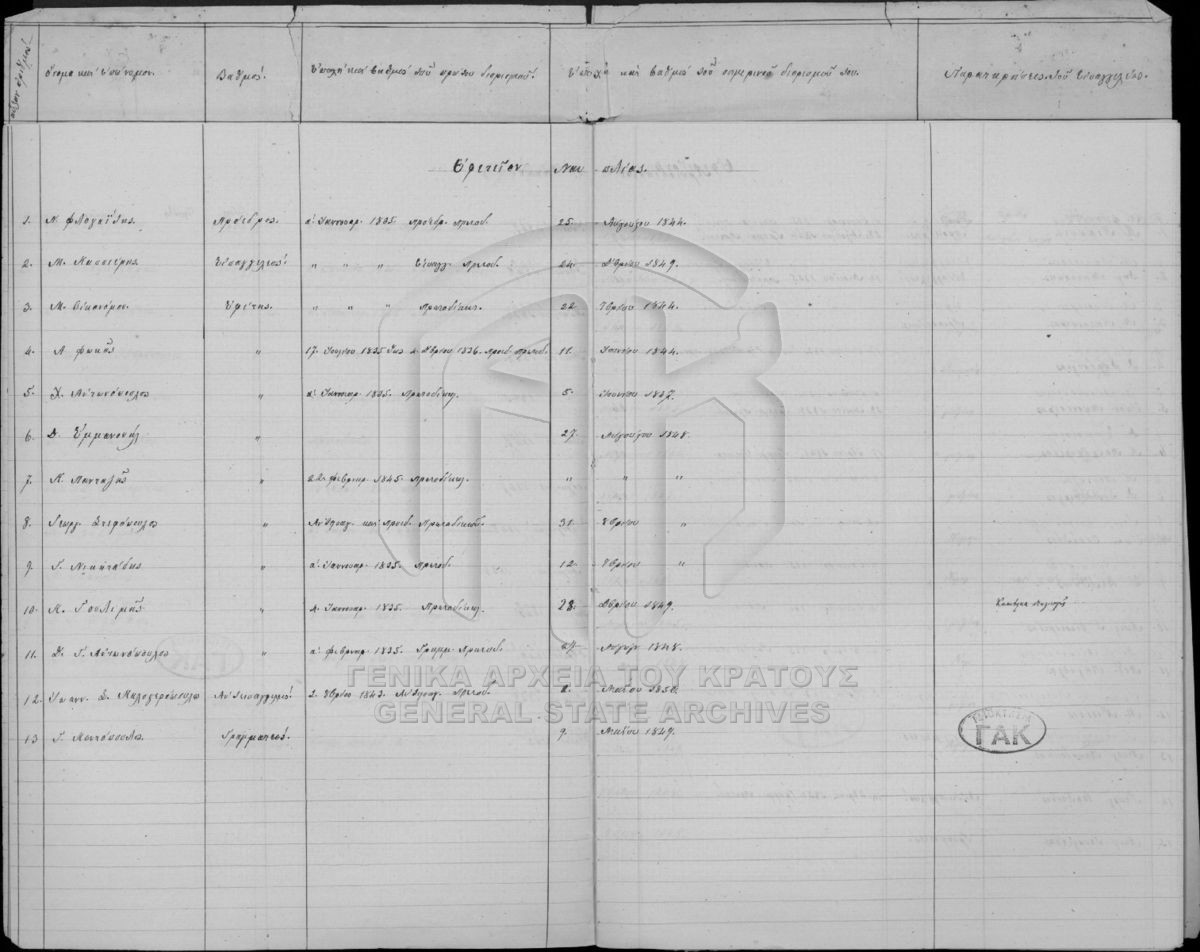 αὔξων ἀριθμός. Ὄνομα καὶ ἐπώνυμον. Βαθμός. Ἐποχὴ καὶ βαθμὸς τοῦ πρώτου διορισμοῦ. Ἐποχὴ καὶ βαθμὸς τοῦ σημερινοῦ διορισμοῦ του. Παρατηρήσεις τοῦ Εἰσαγγελέως.
Ἐφετεῖον Ναυπλίας.
1. Ν. Φλογαΐτης Πρόεδρος. α. Ἰαννουαρ. 1835. Πρόεδρ. Πρωτοδ. 25. Αὐγούστου 1844.
2. Μ. Κασσιέρης Εἰσαγγελεύς. " " " Εἰσαγγ. Πρωτοδ. 24. Δβρίου 1849.
3. Μ. Οἰκονόμου Ἐφέτης. " " " Πρωτοδίκης. 22. 1844.
4. Α. Φωκᾶς " 17. Ἰουλίου 1835 4. Δβρίου 1836. Προεδ. Πρωτοδ. 11. Ἰουνίου 1844.
5. Χ. Ἀντωνόπουλος " α. Ἰαννουαρ. 1835. Πρωτοδίκης. 5. Ἰουνίου
6. Δ. Ἐμμανουήλ " 27. Αὐγούστου 1848.
7. Κ. Πανταζῆς " 22. Φεβρουαρ. 1845. Πρωτοδίκης. " " "
8. Γεωργ. Στεφόπουλος " Ἀντεισαγ. καὶ Προεδ. Πρωτοδικῶν. 31. "
9. Γ. Νικηταΐδης " α. Ἰαννουαρ. 1835. Πρωτοδ. 12. "
10. Κ. Γουλιμῆς " 4. Ἰαννουαρ. 1835. Πρωτοδίκης. 28. Δβρίου 1849.
11. Δ. Γ. Ἀντωνόπουλος " α. Φεβρουαρ. 1835. Γραμμ. Πρωτοδ. 27. Αὐγούστ. 1848.
12. Ἰωανν. Σ. Καλογερόπουλος Ἀντεισαγγελεύς. 2. 1843. Ἀντεισαγ. Πρωτοδ. 8. Μαΐου 1850.
13 Γ. Γραμματεύς. 9. Μαΐου 1849.
ΓΕΝΙΚΑ ΑΡΧΕΙΑ ΤΟΥ ΚΡΑΤΟΥΣ
GENERAL STATE ARCHIVES
ΓΑΚ